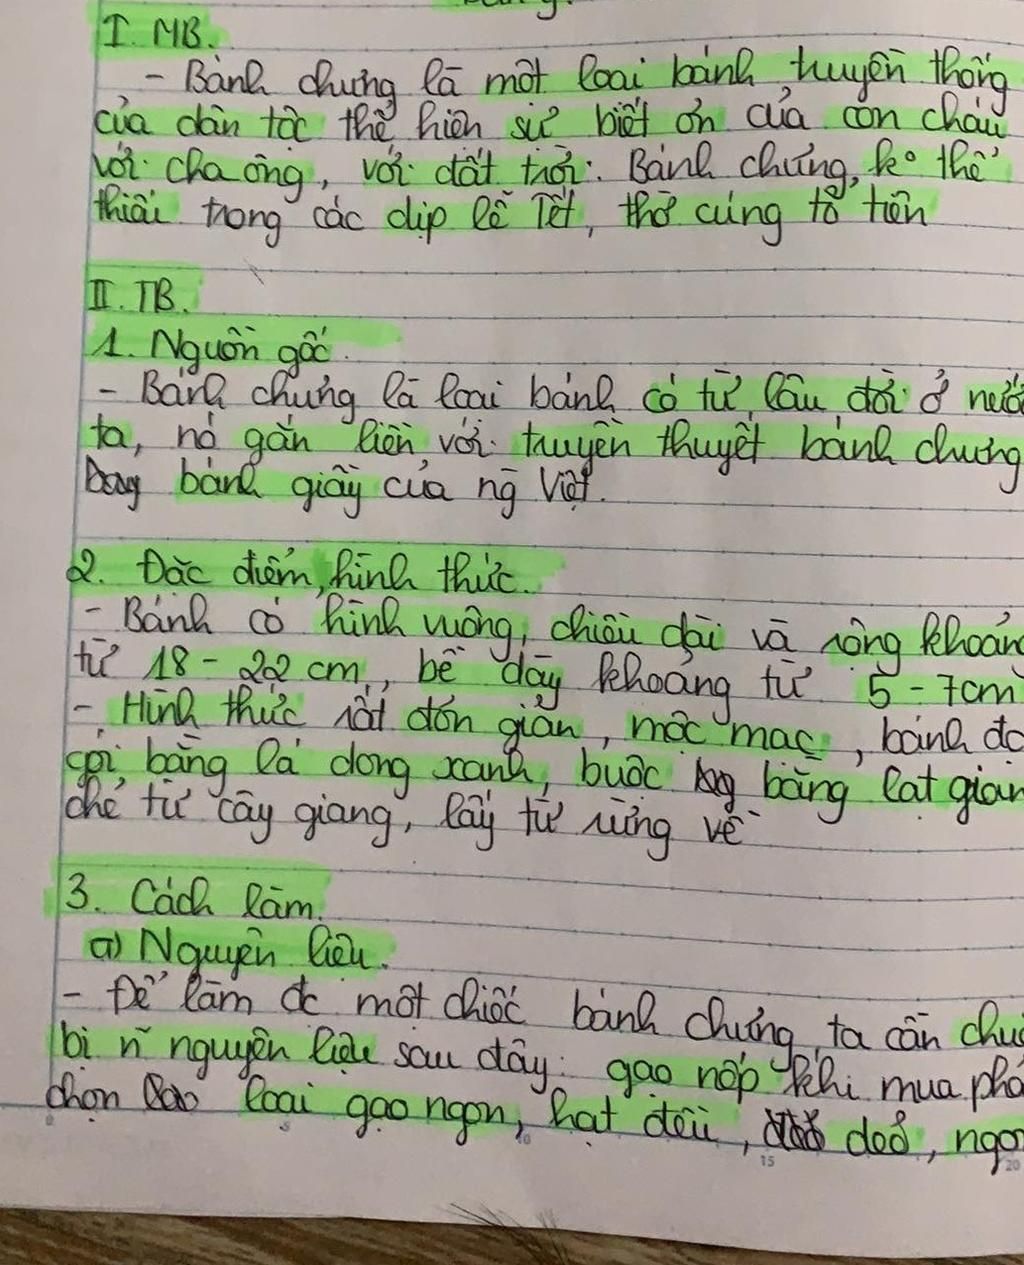 I. MB.
- Bánh chưng là một loại bánh truyền thống
của dân tộc thể hiện sự biết ơn của con cháu
với cha ông, với đất trời. Bánh chưng, ko thể
thiếu trong các dịp lễ Tết, thờ cúng tổ tiên
II. TB.
1. Nguồn gốc.
- Bánh chưng là loại bánh có từ lâu đời ở nướ
ta, nó gắn liền với truyền thuyết bánh chưng
bánh giầy của ng Việt.
2. Đặc điểm, hình thức.
- Bánh có hình vuông, chiều dài và rộng khoản
từ 18 - 22 cm, bề dày khoảng từ 5 - 7cm
- Hình thức rất đơn giản, mộc mạc, bánh đc
gói bằng lá dong xanh, buộc bằng lạt gian
chẻ từ cây giang, lấy từ rừng về
3. Cách làm.
a) Nguyên liệu.
- Để làm đc một chiếc bánh chưng, ta cần chu
bị n~ nguyên liệu sau đây: gạo nếp khi mua phả
chọn loại gạo ngon, hạt đều, dẻo, ngo